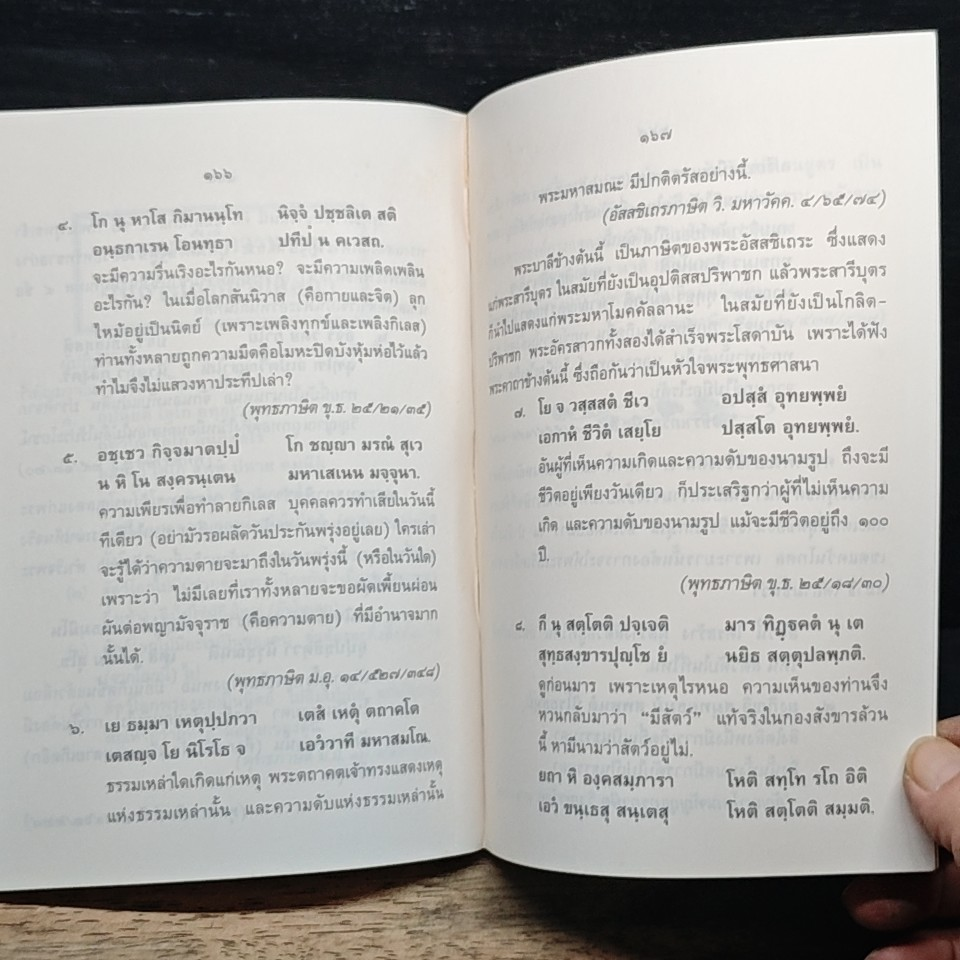 ๑๖๖
๔. โก นุ หาโส กิมานนฺโท นิจฺจํ ปชฺชลิเต สติ
อนฺธกาเรน โอนทฺธา ปทีปํ น คเวสถ.
จะมีความรื่นเริงอะไรกันหนอ? จะมีความเพลิดเพลิน
อะไรกัน? ในเมื่อโลกสันนิวาส (คือกายและจิต) ลุก
ไหม้อยู่เป็นนิตย์ (เพราะเพลิงทุกข์และเพลิงกิเลส)
ท่านทั้งหลายถูกความมืดคือโมหะปิดบังหุ้มห่อไว้แล้ว
ทำไมจึงไม่แสวงหาประทีปเล่า?
(พุทธภาษิต ขุ.ธ. ๒๕/๒๑/๓๕)
๕. อชฺเชว กิจฺจมาตปฺปํ โก ชญฺญา มรณํ สุเว
น หิ โน สงฺครนฺเตน มหาเสเนน มจฺจุนา.
ความเพียรเพื่อทำลายกิเลส บุคคลควรทำเสียในวันนี้
ทีเดียว (อย่ามัวรอผลัดวันประกันพรุ่งอยู่เลย) ใครเล่า
จะรู้ได้ว่าความตายจะมาถึงในวันพรุ่งนี้ (หรือในวันใด)
เพราะว่า ไม่มีเลยที่เราทั้งหลายจะขอผัดเพี้ยนผ่อน
ผันต่อพญามัจจุราช (คือความตาย) ที่มีอำนาจมาก
นั้นได้.
(พุทธภาษิต ม.อุ. ๑๔/๕๒๗/๓๔๘)
๖. เย ธมฺมา เหตุปฺปภวา เตสํ เหตุํ ตถาคโต
เตสญฺจ โย นิโรโธ จ เอวํวาที มหาสมโณ.
ธรรมเหล่าใดเกิดแก่เหตุ พระตถาคตเจ้าทรงแสดงเหตุ
แห่งธรรมเหล่านั้น และความดับแห่งธรรมเหล่านั้น
๑๖๗
พระมหาสมณะ มีปกติตรัสอย่างนี้.
(อัสสชิเถรภาษิต วิ. มหาวัคค. ๔/๖๕/๗๔)
พระบาลีข้างต้นนี้ เป็นภาษิตของพระอัสสชิเถระ ซึ่งแสดง
แก่พระสารีบุตร ในสมัยที่ยังเป็นอุปติสสปริพาชก แล้วพระสารีบุตร
ก็นำไปแสดงแก่พระมหาโมคคัลลานะ ในสมัยที่ยังเป็นโกลิต-
ปริพาชก พระอัครสาวกทั้งสองได้สำเร็จพระโสดาบัน เพราะได้ฟัง
พระคาถาข้างต้นนี้ ซึ่งถือกันว่าเป็นหัวใจพระพุทธศาสนา
๗. โย จ วสฺสสตํ ชีเว อปสฺสํ อุทยพฺพยํ
เอกาหํ ชีวิตํ เสยฺโย ปสฺสโต อุทยพฺพยํ.
อันผู้ที่เห็นความเกิดและความดับของนามรูป ถึงจะมี
ชีวิตอยู่เพียงวันเดียว ก็ประเสริฐกว่าผู้ที่ไม่เห็นความ
เกิด และความดับของนามรูป แม้จะมีชีวิตอยู่ถึง ๑๐๐
ปี.
(พุทธภาษิต ขุ.ธ. ๒๕/๑๘/๓๐)
๘. กึ นุ สตฺโตติ ปจฺเจติ มาร ทิฏฺฐิคตํ นุ เต
สุทฺธสงฺขารปุญฺโช ยํ นยิธ สตฺตุปลพฺภติ.
ดูก่อนมาร เพราะเหตุไรหนอ ความเห็นของท่านจึง
หวนกลับมาว่า “มีสัตว์” แท้จริงในกองสังขารล้วน
นี้ หามีนามว่าสัตว์อยู่ไม่.
ยถา หิ องฺคสมฺภารา โหติ สทฺโท รโถ อิติ
เอวํ ขนฺเธสุ สนฺเตสุ โหติ สตฺโตติ สมฺมติ.